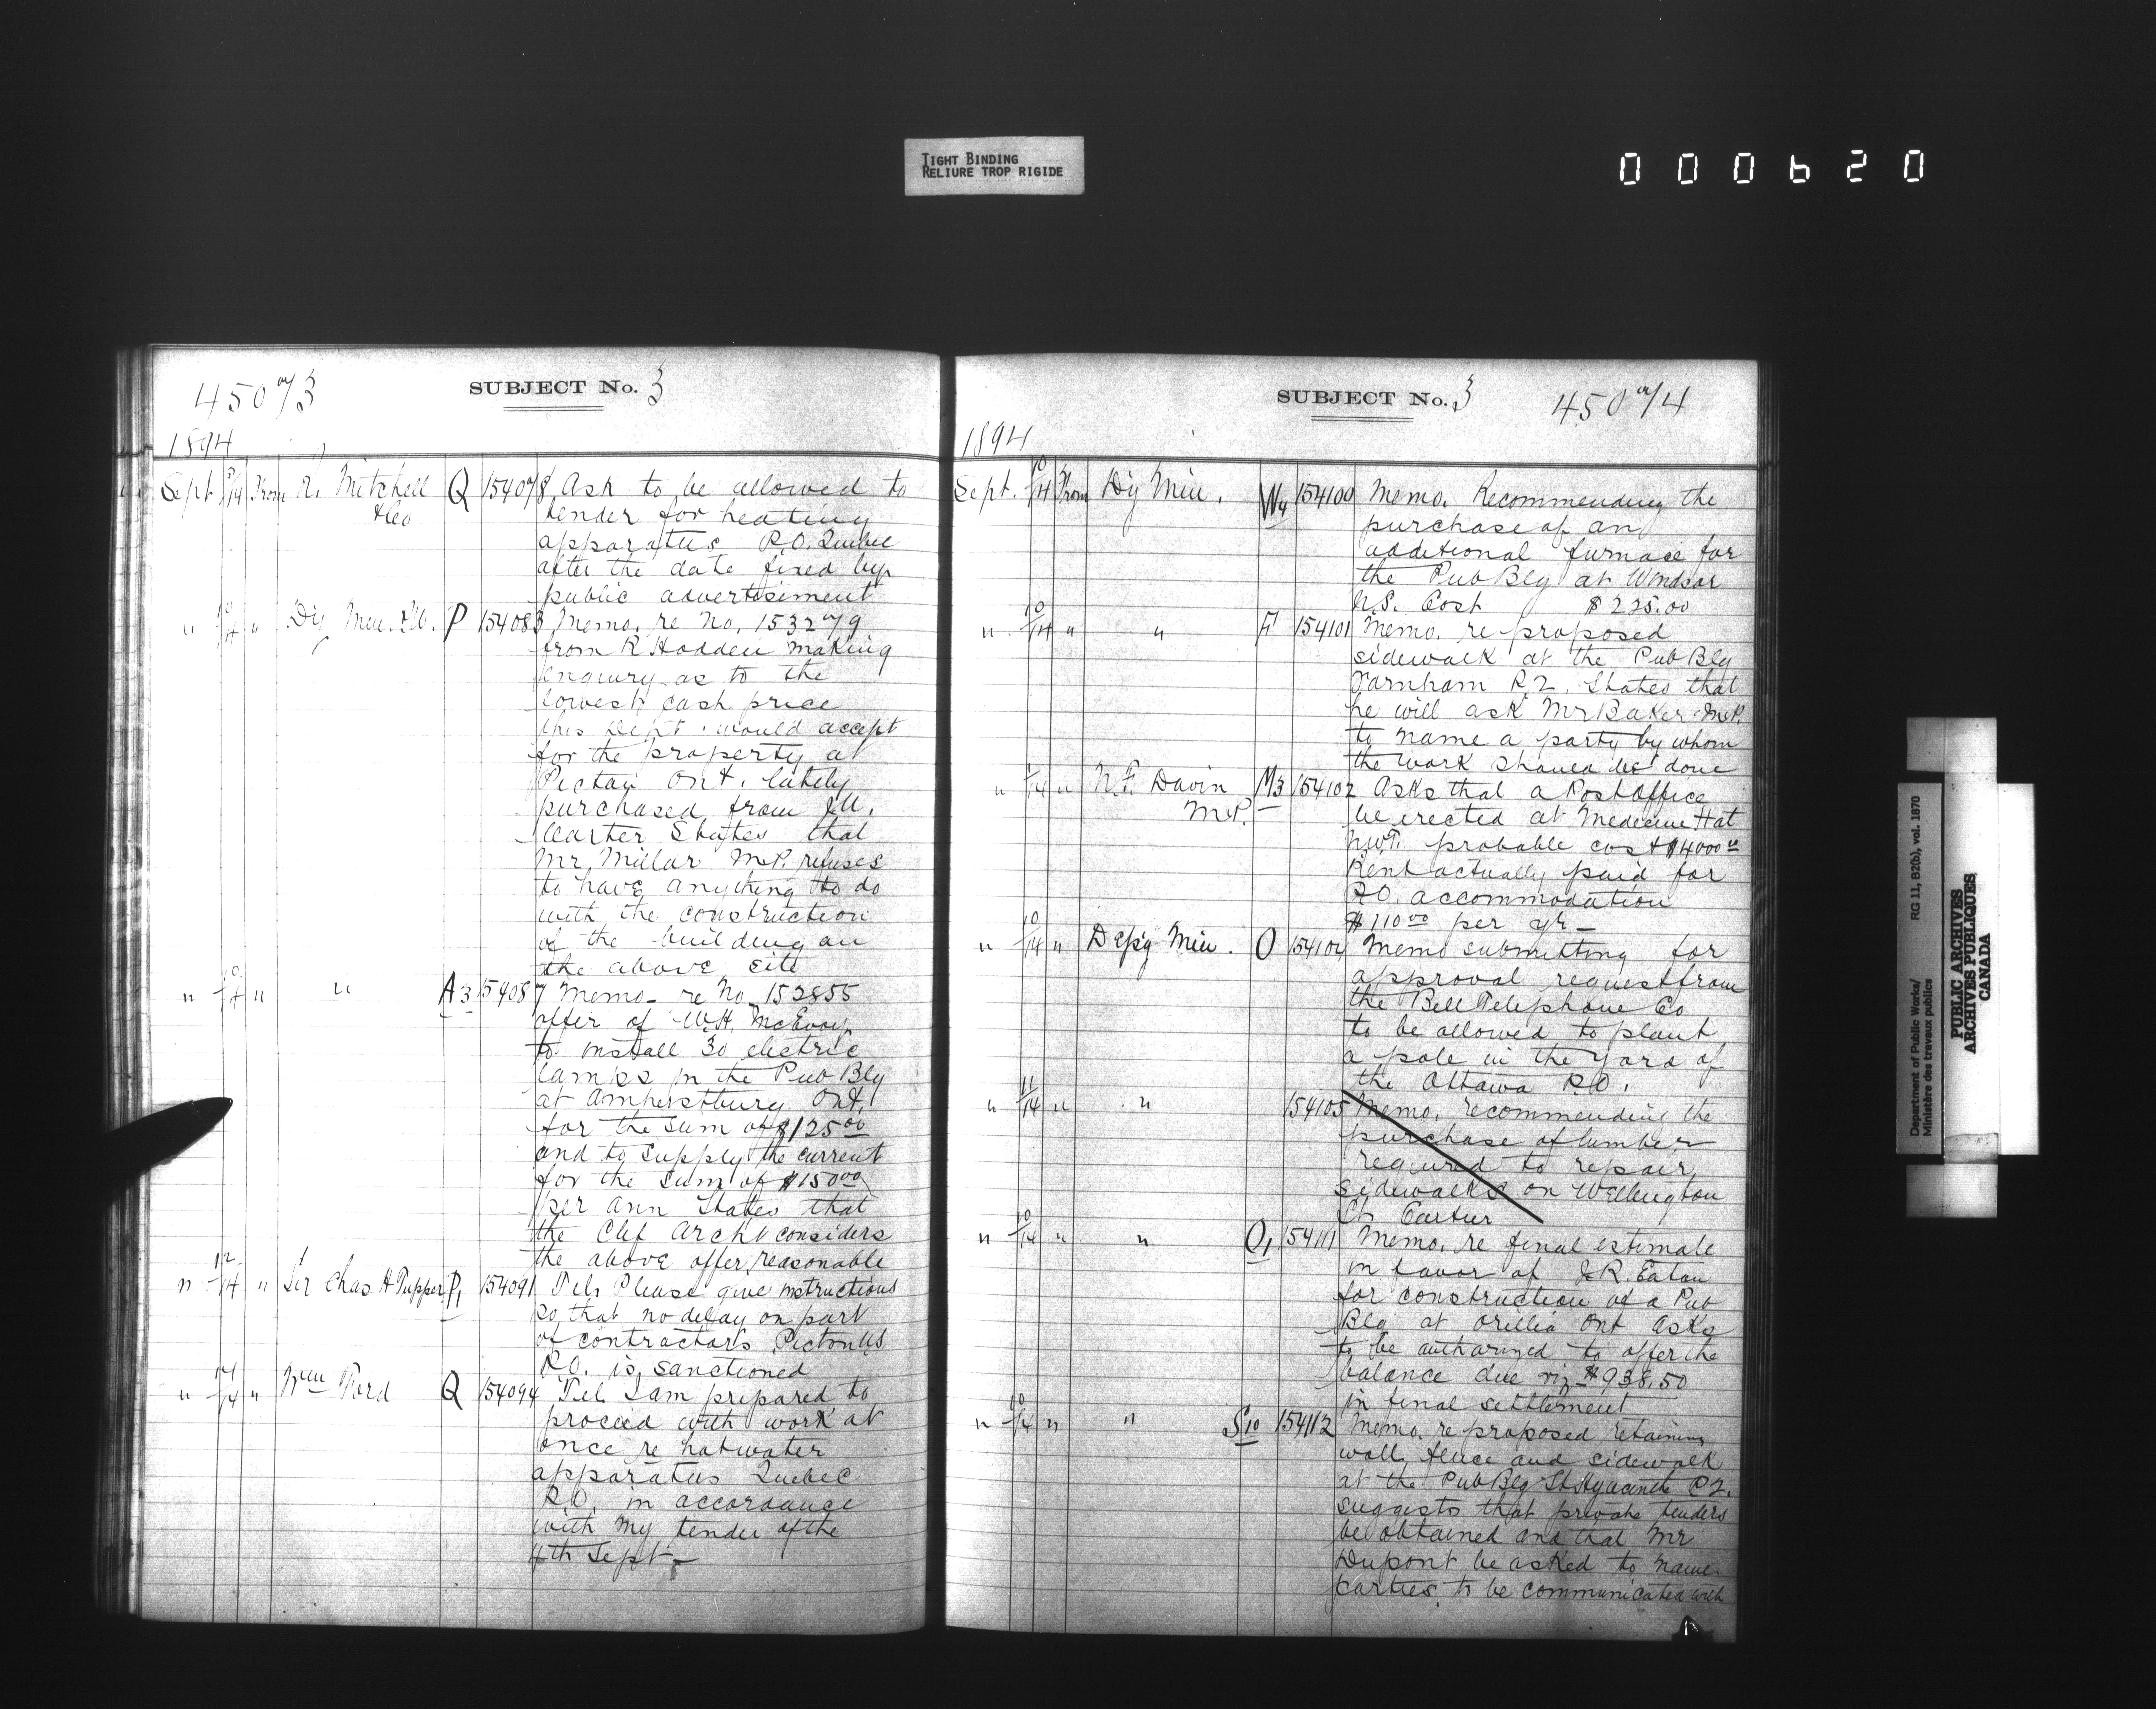 TIGHT BINDING
RELIURE TROP RIGIDE
000620
4507/3
SUBJECT No. 3
1894
Sept. From R. Mitchell & Co Q 154078 Ask to be allowed to
tender for heating
apparatus P.O. Quebec
after the date fixed by
public advertisement
" 10/14 " Dy Min. P.W. P 154083 Memo. re No. 153279
from R Hadden making
enquiry as to the
lowest cash price
this Dept. would accept
for the property at
Picton Ont. lately
purchased from J.W.
Carter States that
Mr. Millar M.P. refuses
to have anything to do
with the construction
of the building on
the above site
" 10/14 " " A3 154087 Memo. re No 152855
offer of W.H. McEvoy
to install 30 electric
lamps in the Pub Blg
at Amherstburg Ont.
for the sum of $125.00
and to supply the current
for the sum of $150.00
per ann States that
the Chf Archt considers
the above offer reasonable
" 12/14 " Sir Chas H Tupper P1 154091 Tel. Please give instructions
so that no delay on part
of contractors Picton NS
P.O. is sanctioned
" 14/14 " Wm Ford Q 154094 Tel. I am prepared to
proceed with work at
once re hotwater
apparatus Quebec
P.O. in accordance
with my tender of the
4th Sept
SUBJECT No. 3
450 a/4
1894
Sept. 10/14 From Dy Min. W4 154100 Memo. Recommending the
purchase of an
additional furnace for
the Pub Blg at Windsor
N.S. Cost $225.00
" 10/14 " " F 154101 Memo. re proposed
sidewalk at the Pub Blg
Farnham P.Q. States that
he will ask Mr Baker M.P.
to name a party by whom
the work should be done
" " N.F. Davin M.P. M3 154102 Asks that a Post Office
be erected at Medecine Hat
NWT. probable cost $4000.00
Rent actually paid for
P.O. accommodation
$110.00 per yr
" 10/14 " Dep'y Min. O 154104 Memo submitting for
approval request from
the Bell Telephone Co
to be allowed to plant
a pole in the yard of
the Ottawa P.O.
" 11/14 " " 154105 Memo. recommending the
purchase of lumber
required to repair
sidewalks on Wellington
St. Cartur
" 10/14 " " O1 154111 Memo. re final estimate
in favor of J.R. Eaton
for construction of a Pub
Blg at Orillia Ont Asks
to be authorized to offer the
balance due viz $938.50
in final settlement
" 10/14 " " S10 154112 Memo. re proposed retaining
wall, fence and sidewalk
at the Pub Blg St Hyacinthe P.Q.
suggests that private tenders
be obtained and that Mr
Dupont be asked to name
parties to be communicated with
Department of Public Works/
Ministère des travaux publics
RG 11, B2(b), vol. 1870
PUBLIC ARCHIVES
ARCHIVES PUBLIQUES
CANADA